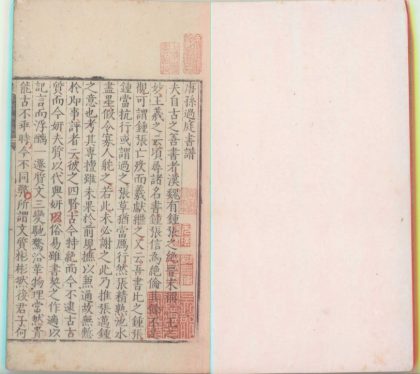 唐孫過庭書譜
夫自古之善書者漢魏有鍾張之絕晉末稱二王之
妙王羲之云頃尋諸名書鍾張信為絕倫其餘不
觀可謂鍾張亡沒而羲獻繼之又云吾書比之鍾張
鍾當抗行或謂過之張草猶當鴈行然張精熟池水
盡墨假令寡人耽之若此未必謝之此乃推張邁鍾
之意也考其專擅雖未果於前規摭以兼通故無慙
於即事評者云彼之四賢古今特絕而今不逮古古
質而今妍夫質以代興妍因俗易雖書契之作適以
記言而淳醨一遷質文三變馳騖沿革物理常然貴
能古不乖時今不同弊所謂文質彬彬然後君子何